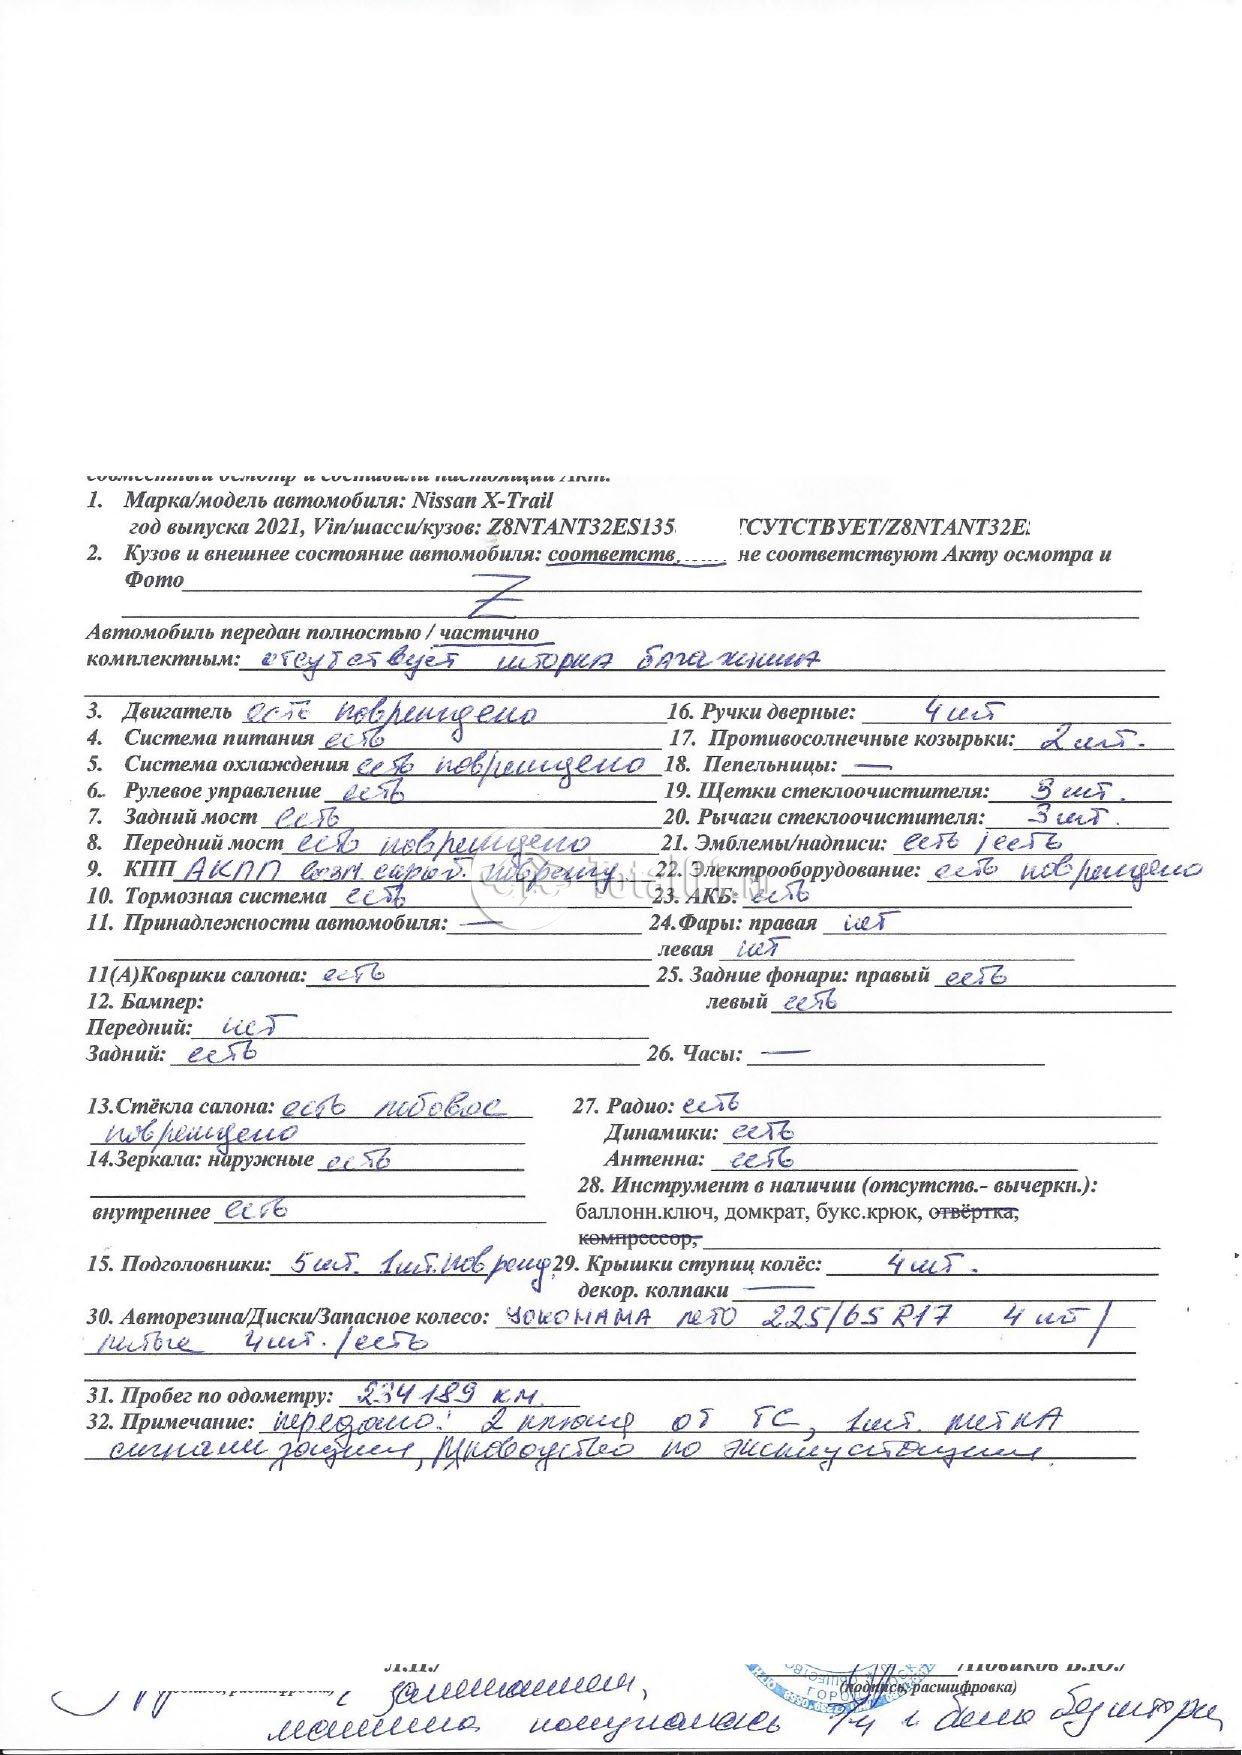 1. Марка/модель автомобиля: Nissan X-Trail
год выпуска 2021, Vin/шасси/кузов: Z8NTANT32ES135 ТСУТСТВУЕТ/Z8NTANT32E
2. Кузов и внешнее состояние автомобиля: соответств не соответствуют Акту осмотра и
Фото Z
Автомобиль передан полностью / частично
комплектным: отсутствует шторка багажника
3. Двигатель есть повреждено
16. Ручки дверные: 4 шт
4. Система питания есть
17. Противосолнечные козырьки: 2 шт.
5. Система охлаждения есть повреждено
18. Пепельницы: —
6. Рулевое управление есть
19. Щетки стеклоочистителя: 3 шт.
7. Задний мост есть
20. Рычаги стеклоочистителя: 3 шт.
8. Передний мост есть повреждено
21. Эмблемы/надписи: есть /есть
9. КПП АКПП возм. скрыт. поврежд
22. Электрооборудование: есть повреждено
Total01.ru
10. Тормозная система есть
23. АКБ: есть
11. Принадлежности автомобиля: —
24.Фары: правая нет
левая нет
11(А)Коврики салона: есть
25. Задние фонари: правый есть
12. Бампер:
левый есть
Передний: нет
Задний: есть
26. Часы: —
13.Стёкла салона: есть лобовое
27. Радио: есть
повреждено
Динамики: есть
14.Зеркала: наружные есть
Антенна: есть
28. Инструмент в наличии (отсутств.- вычеркн.):
внутреннее есть
баллонн.ключ, домкрат, букс.крюк, отвёртка,
компрессор,
15. Подголовники: 5 шт. 1 шт. повреж
29. Крышки ступиц колёс: 4 шт.
декор. колпаки —
30. Авторезина/Диски/Запасное колесо: YOKOHAMA лето 225/65 R17 4 шт/
литые 4 шт. /есть
31. Пробег по одометру: 234189 км
32. Примечание: передано: 2 ключа от ТС, 1 шт. метка
сигнализации, руководство по эксплуатации
/Новиков В.Ю./
(подпись, расшифровка)
с замечанием,
машина покупалась и была без шторки